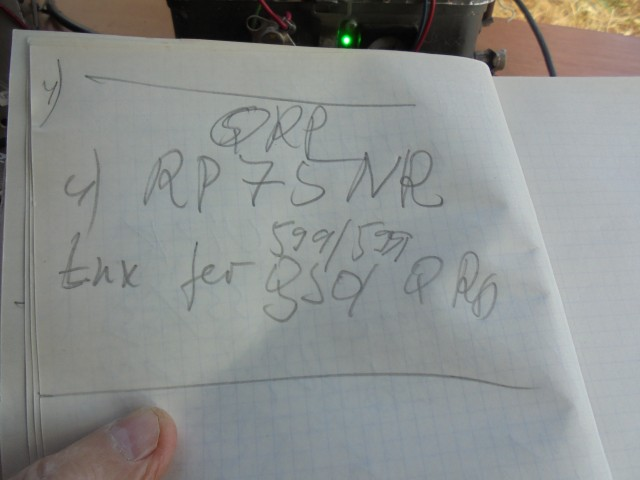 4)
QRP
4) RP75NR
599/599
tnx fer QSO QRP